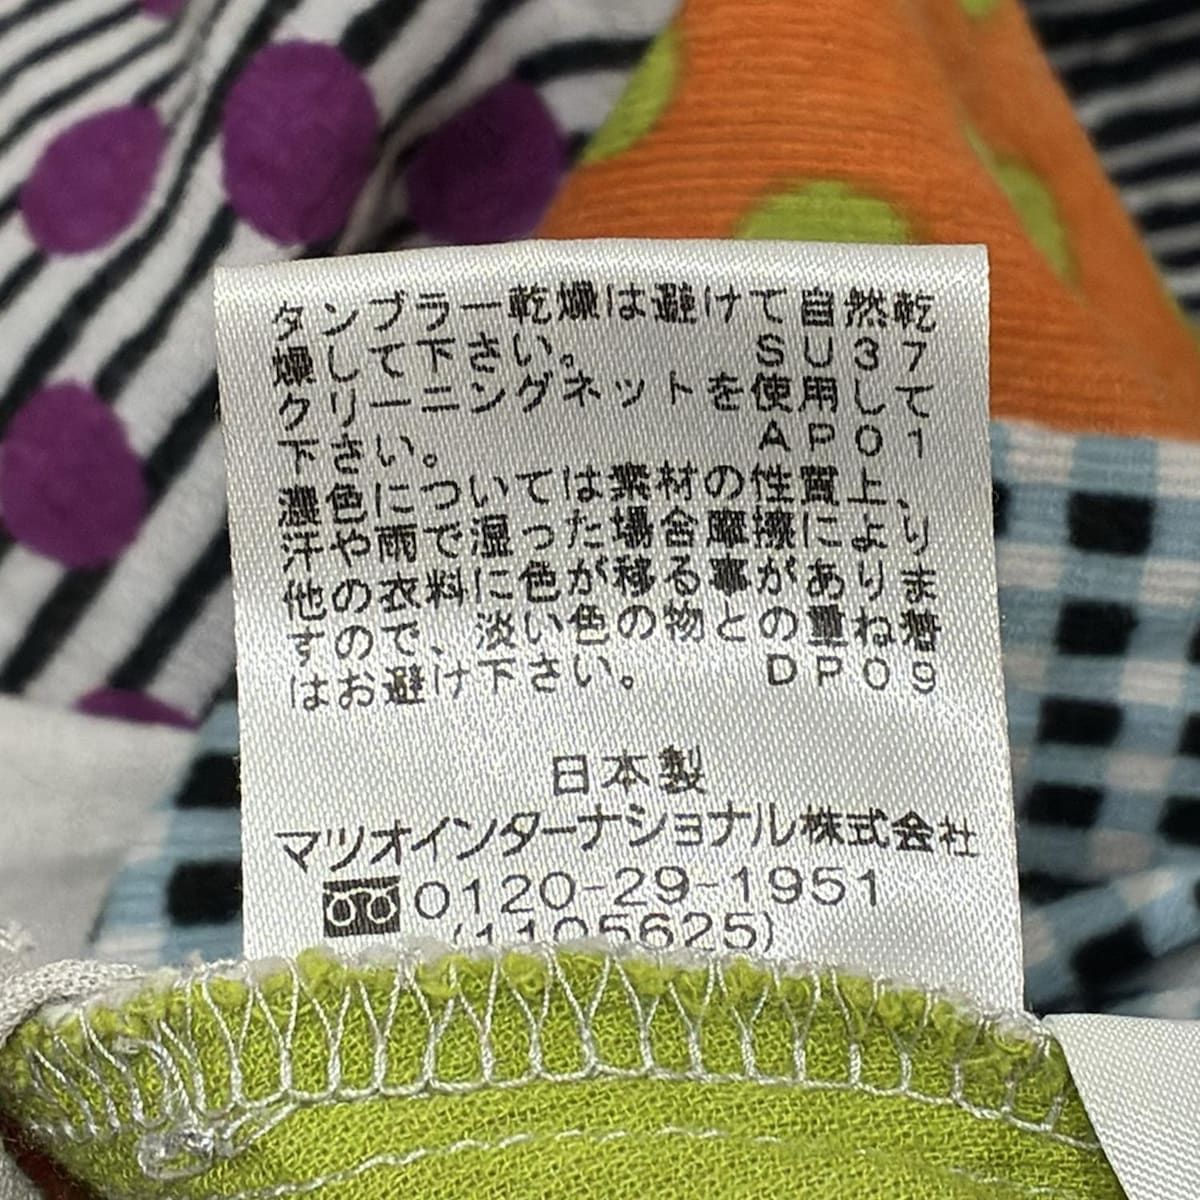 タンブラー乾燥は避けて自然乾
燥して下さい。 SU37
クリーニングネットを使用して
下さい。 AP01
濃色については素材の性質上、
汗や雨で湿った場合摩擦により
他の衣料に色が移る事がありま
すので、淡い色の物との重ね着
はお避け下さい。 DP09
日本製
マツオインターナショナル株式会社
0120-29-1951
(1105625)